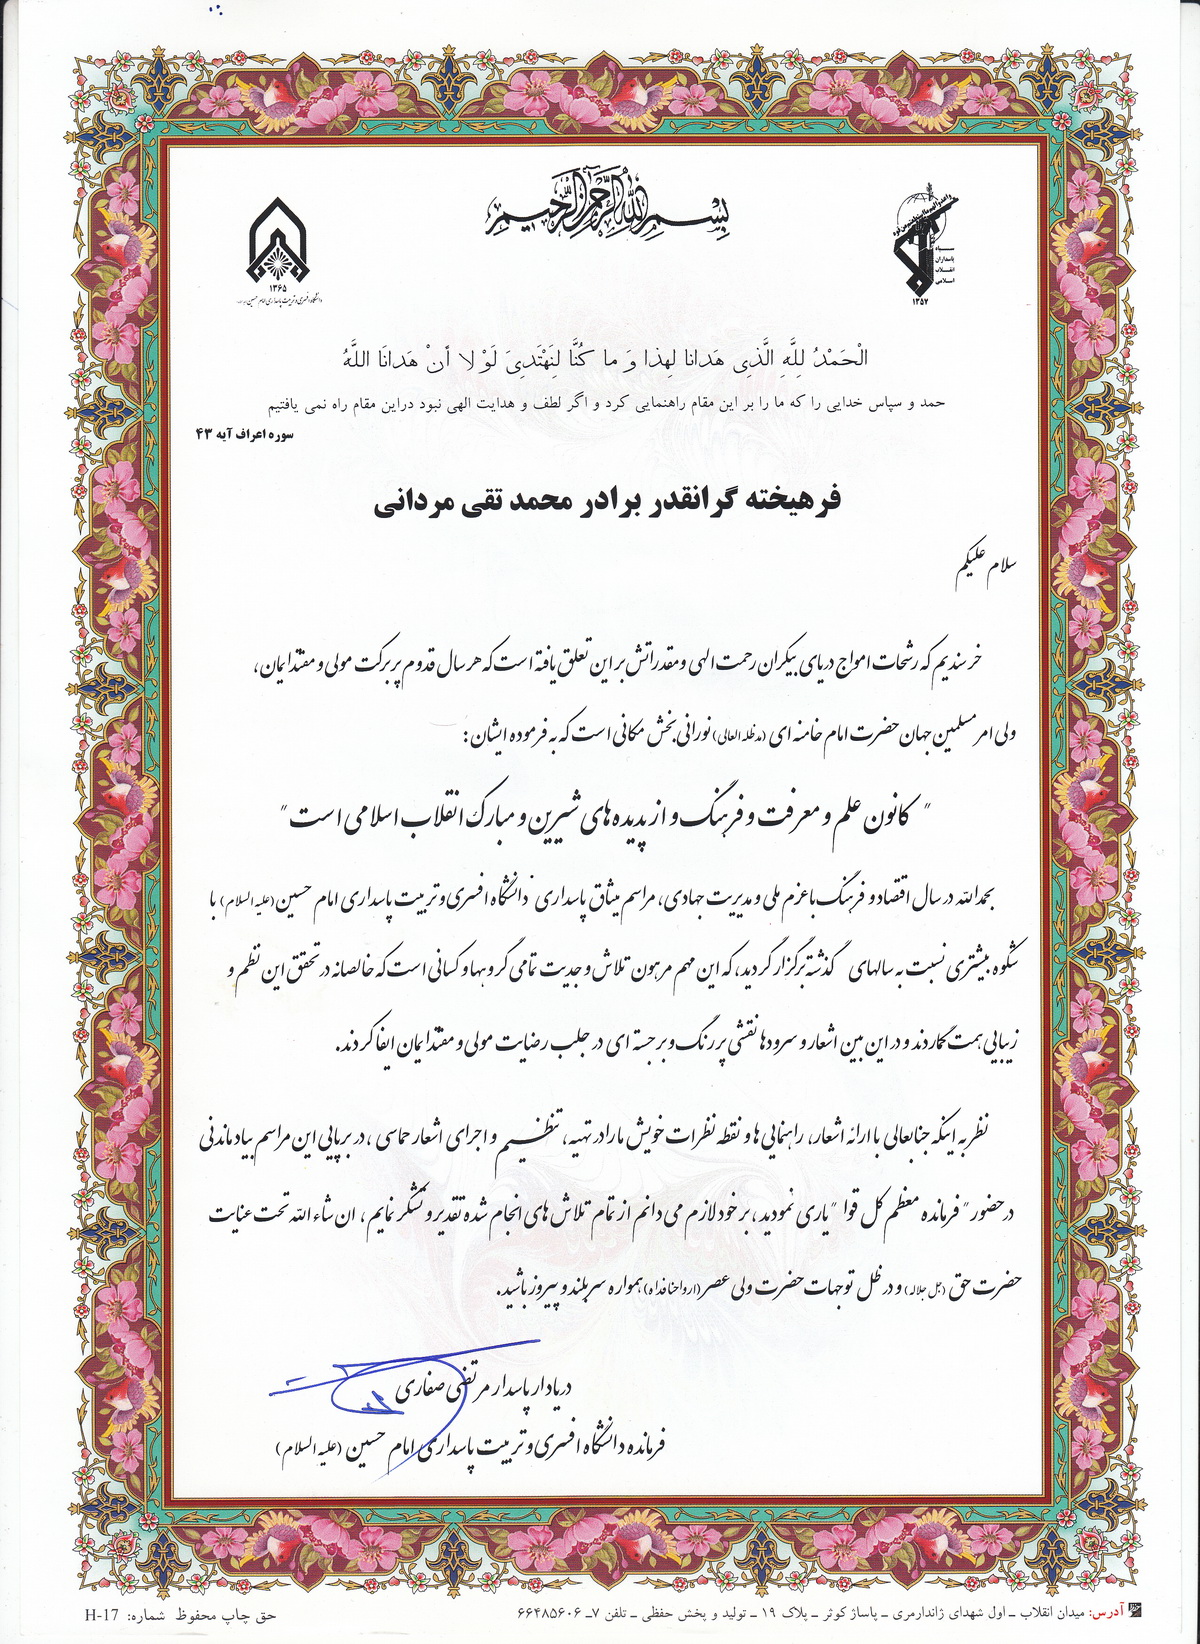 بسم الله الرحمن الرحیم
سپاه
پاسداران
انقلاب
اسلامی
۱۳۵۷
۱۳۶۵
دانشگاه افسری و تربیت پاسداری امام حسین
الْحَمْدُ لِلَّهِ الَّذِی هَدانا لِهذا وَ ما کُنَّا لِنَهْتَدِیَ لَوْ لا أنْ هَدانَا اللَّهُ
حمد و سپاس خدایی را که ما را بر این مقام راهنمایی کرد و اگر لطف و هدایت الهی نبود دراین مقام راه نمی یافتیم
سوره اعراف آیه ۴۳
فرهیخته گرانقدر برادر محمد تقی مردانی
سلام علیکم
خرسندیم که رشحات امواج دریای بیکران رحمت الهی و مقدراتش بر این تعلق یافته است که هر سال قدوم پر برکت مولی و مقتدایمان،
ولی امر مسلمین جهان حضرت امام خامنه ای (مدظله العالی) نورانی بخش مکانی است که به فرموده ایشان:
" کانون علم و معرفت و فرهنگ و از پدیده های شیرین و مبارک انقلاب اسلامی است "
بحمدالله در سال اقتصاد و فرهنگ با عزم ملی و مدیریت جهادی، مراسم میثاق پاسداری دانشگاه افسری و تربیت پاسداری امام حسین (علیه السلام) با
شکوه بیشتری نسبت به سالهای گذشته برگزار گردید، که این مهم مرهون تلاش و جدیت تمامی گروهها و کسانی است که خالصانه در تحقق این نظم و
زیبایی همت گماردند و در این بین اشعار و سرودها نقشی پر رنگ و برجسته ای در جلب رضایت مولی و مقتدایمان ایفا کردند.
نظر به اینکه جنابعالی با ارائه اشعار، راهنمایی ها و نقطه نظرات خویش ما را در تهیه، تنظیم و اجرای اشعار حماسی، در برپایی این مراسم بیاد ماندنی
در حضور "فرمانده معظم کل قوا" یاری نمودید، بر خود لازم می دانم از تمام تلاش های انجام شده تقدیر و تشکر نمایم، ان شاء الله تحت عنایت
حضرت حق (جل جلاله) و در ظل توجهات حضرت ولی عصر (ارواحنا فداه) همواره سربلند و پیروز باشید.
دریادار پاسدار مرتضی صفاری
فرمانده دانشگاه افسری و تربیت پاسداری امام حسین (علیه السلام)
آدرس: میدان انقلاب ـ اول شهدای ژاندارمری ـ پاساژ کوثر ـ پلاک ۱۹ ـ تولید و پخش حفظی ـ تلفن ۷ـ ۶۶۴۸۵۶۰۶
حق چاپ محفوظ شماره: H-17